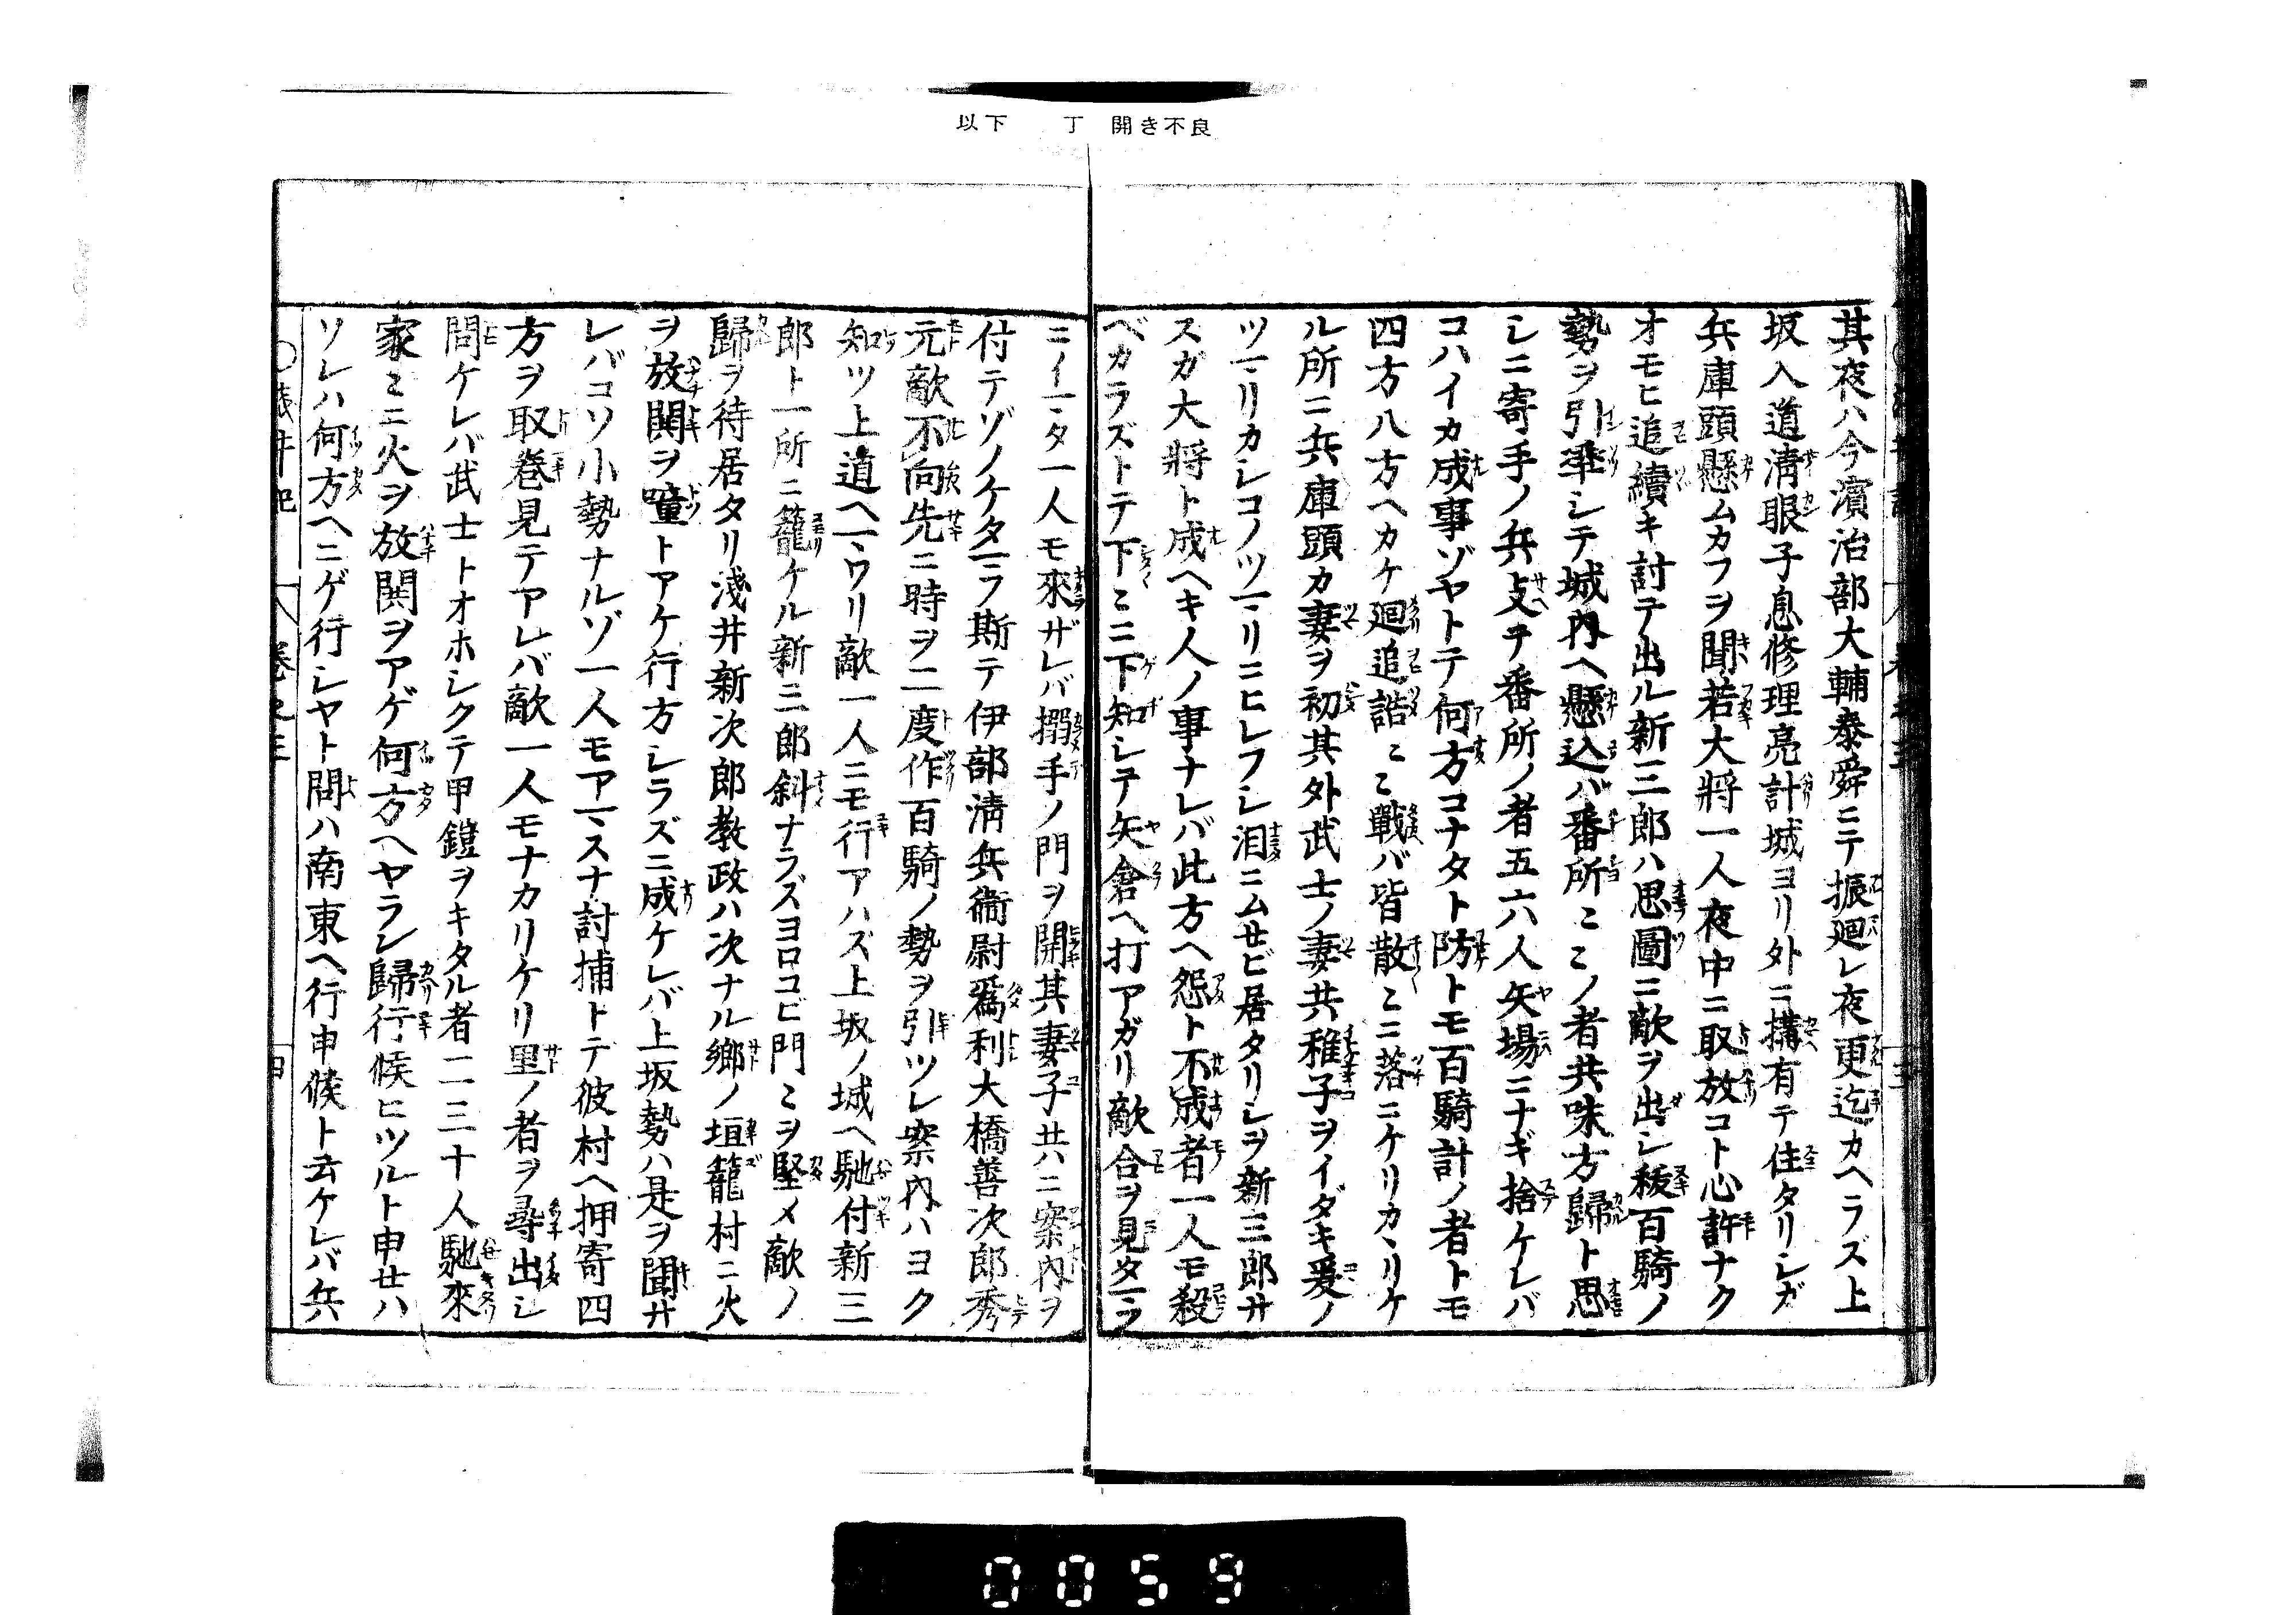 以下　丁　開き不良
其夜ハ今濱治部大輔泰舜ニテ振廻レ夜更迄カヘラズ上
坂入道清眼子息修理亮計城ヨリ外ニ構有テ住タリシガ
兵庫頭懸ムカフヲ聞若大將一人夜中ニ取放コト心許ナク
オモヒ追續キ討テ出ル新三郎ハ思圖ニ敵ヲ出シ稜百騎ノ
勢ヲ引率シテ城内ヘ懸込バ番所ミミノ者共味方歸ト思
シニ寄手ノ兵攴ヲ番所ノ者五六人矢場ニナギ捨ケレバ
コハイカ成事ゾヤトテ何方コナタト防トモ百騎計ノ者トモ
四方八方ヘカケ廻追詰ミミ戰バ皆散ミニ落ニケリカヽリケ
ル所ニ兵庫頭カ妻ヲ初其外武士ノ妻共稚子ヲイダキ爰ノ
ツマリカシコノツマリニヒレフシ泪ニムセビ居タリシヲ新三郎サ
スガ大將ト成ヘキ人ノ事ナレバ此方ヘ怨ト不成者一人モ殺
ベカラズトテ下ミニ下知シテ矢倉ヘ打アガリ敵合ヲ見タマフ
ニイマタ一人モ來ザレバ搦手ノ門ヲ開其妻子共ニ案内ヲ
付テゾノケタマフ斯テ伊部清兵衞尉爲利大橋善次郎秀
元敵不向先ニ時ヲ二度作百騎ノ勢ヲ引ツレ案内ハヨク
知ツ上道ヘマワリ敵一人ニモ行アハズ上坂ノ城ヘ馳付新三
郎ト一所ニ籠ケル新三郎斜ナラズヨロコビ門ミヲ堅メ敵ノ
歸ヲ待居タリ淺井新次郎教政ハ次ナル郷ノ垣籠村ニ火
ヲ放鬨ヲ噇トアケ行方シラズニ成ケレバ上坂勢ハ是ヲ聞サ
レバコソ小勢ナルゾ一人モアマスナ討捕トテ彼村ヘ押寄四
方ヲ取巻見テアレバ敵一人モナカリケリ里ノ者ヲ尋出シ
問ケレバ武士トオホシクテ甲鎧ヲキタル者二三十人馳來
家ミニ火ヲ放鬨ヲアゲ何方ヘヤラン歸行候ヒツルト申サハ
ソレハ何方ヘニゲ行シヤト問ハ南東ヘ行申候ト云ケレバ兵
0059